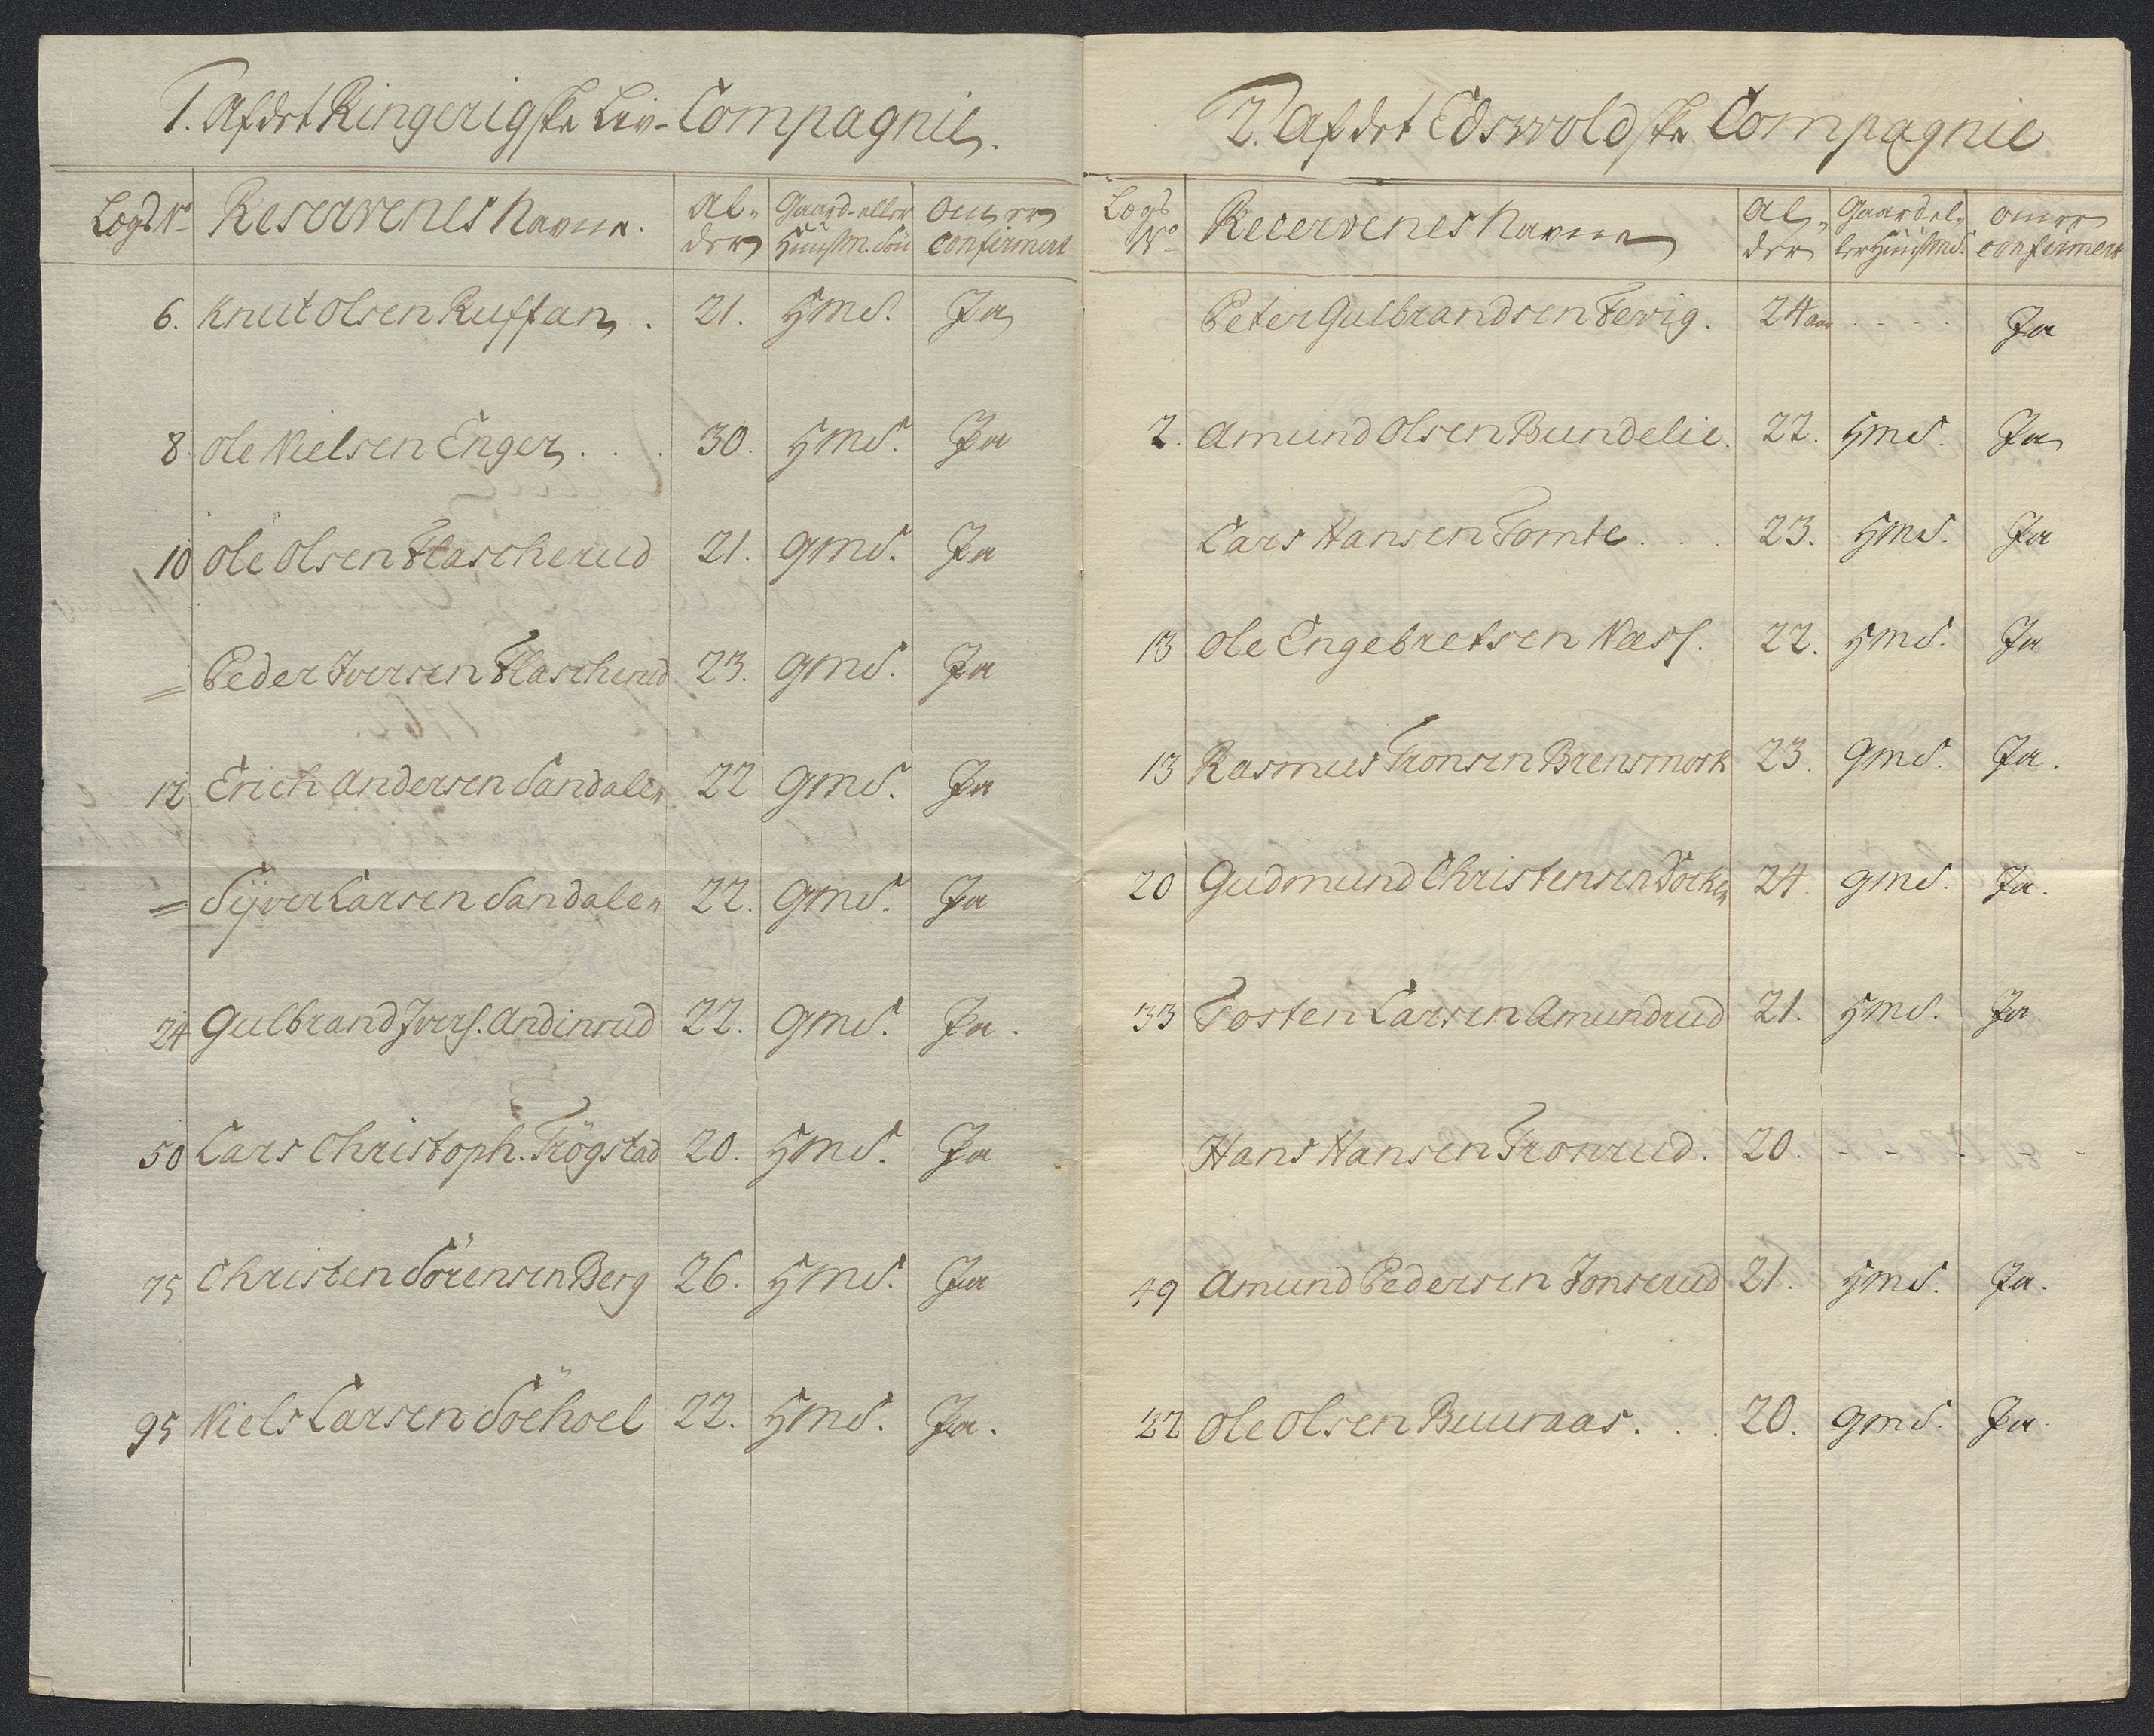 1. Af det Ringerigske Liv-Compagnie.
Lægd No Reservenes Navne. Al- Gaard- eller om er
der Huusm. Sön confirmert
6. Knut Olsen Ruffan. 21. HmS. Ja
8. Ole Nielsen Enger. . . 30. HmS. Ja
10 Ole Olsen Flascherud 21. GmS. Ja
= Peder Iversen Flascherud 23. GmS. Ja
12 Erich Andersen Sandalen 22 GmS. Ja
= Syver Larsen Sandalen 22. GmS. Ja
24 Gulbrand Ivers. Andinrud 22. GmS. Ja.
50 Lars Christoph. Frögstad 20. HmS. Ja
75 Christen Sörensen Berg 26. HmS. Ja
95 Niels Larsen Söehoel 22. HmS. Ja.
2. Af det Edswoldske Compagnie
Lægd Recervenes Navne Al- Gaard el- om er
No der ler HuusmS. confirmert
Peter Gulbrandsen Fevig. 24 aar . . . . Ja
2. Amund Olsen Bundelie. 22. HmS. Ja
Lars Hansen Tomte. . . 23. HmS. Ja
13 Ole Engebretsen Næss. 22. HmS. Ja
13 Rasmus Tronsen Brensmork 23. GmS. Ja.
20 Gudmund Christensen 24. GmS. Ja.
33 Tosten Larsen Amundrud 21. HmS. Ja
Hans Hansen Tronrud. 20. - - - - -
49 Amund Pedersen Jonserud 21. HmS. Ja.
32 Ole Olsen Buuraas. . . 20. GmS. Ja.